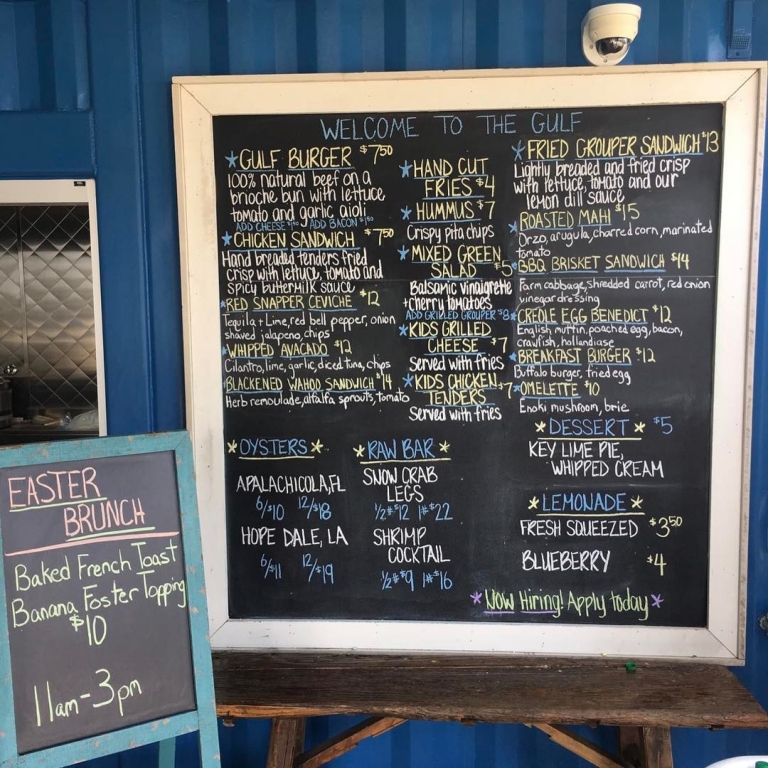 WELCOME TO THE GULF
GULF BURGER $7.50
100% natural beef on a
brioche bun with lettuce
tomato and garlic aioli
ADD CHEESE $1.50 ADD BACON $1.50
CHICKEN SANDWICH $7.50
Hand breaded tenders fried
crisp with lettuce, tomato and
spicy buttermilk sauce
RED SNAPPER CEVICHE $12
Tequila + Lime, red bell pepper, onion
shaved jalapeno, chips
WHIPPED AVACADO $12
Cilantro, lime, garlic, diced tuna, chips
BLACKENED WAHOO SANDWICH $14
Herb remoulade, alfalfa sprouts, tomato
HAND CUT
FRIES $4
HUMMUS $7
Crispy pita chips
MIXED GREEN
SALAD $5
Balsamic vinaigrette
+ cherry tomatoes
ADD GRILLED GROUPER $8
KIDS GRILLED
CHEESE $7
Served with fries
KIDS CHICKEN
TENDERS $7
Served with fries
FRIED GROUPER SANDWICH $13
Lightly breaded and fried crisp
with lettuce, tomato and our
lemon dill sauce
ROASTED MAHI $15
Orzo, arugula, charred corn, marinated
tomato
BBQ BRISKET SANDWICH $14
Farm cabbage, shredded carrot, red onion
vinegar dressing
CREOLE EGG BENEDICT $12
English muffin, poached egg, bacon,
crawfish, hollandiase
BREAKFAST BURGER $12
Buffalo burger, fried egg
OMELETTE $10
Enoki mushroom, brie
OYSTERS
APALACHICOLA, FL
6/$10 12/$18
HOPE DALE, LA
6/$11 12/$19
RAW BAR
SNOW CRAB
LEGS
1/2# $12 1# $22
SHRIMP
COCKTAIL
1/2# $9 1# $16
DESSERT $5
KEY LIME PIE,
WHIPPED CREAM
LEMONADE
FRESH SQUEEZED $3.50
BLUEBERRY $4
NOW HIRING! Apply today
EASTER
BRUNCH
Baked French Toast
Banana Foster Topping
$10
11am-3pm